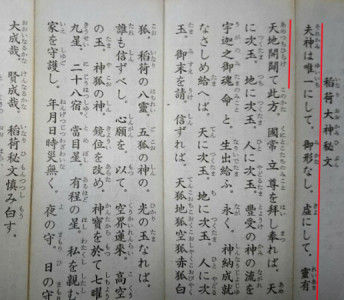 稻荷大神秘文
夫神は唯一にして。御形なし。虚にして。靈有
天地開闢て此方。國常立尊を拜し奉れば。天
に次玉。地に次玉。人に次玉。豊受の神の流を
宇迦之御魂命と。生出給ふ。永く。神納成就
なさしめ給へば。天に次玉。地に次玉。人に次
玉。御末を請。信ずれば。天狐地狐空狐赤狐白
狐。稻荷の八靈。五狐の神の。光の玉なれば。
誰も信ずべし。心願を。以て。空界蓮來。高空
の玉。神狐の神。鏡位を改め。神寶を於て。七曜
九星。二十八宿。當目星。有程の星。私を親む。
家を守護し。年月日時災無く。夜の守。日の守
大成哉。賢成哉。稻荷秘文慎み白す。